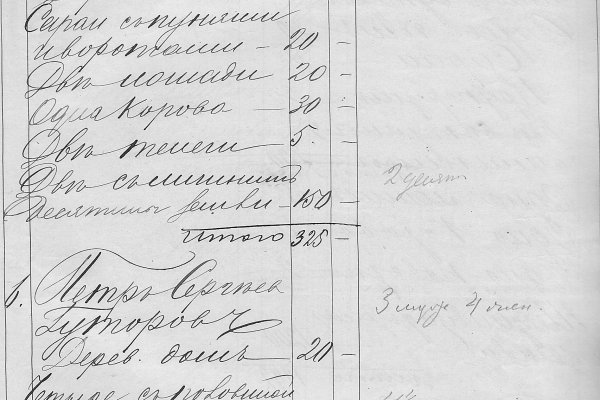 Сараи съ пунями
и воротами — 20 —
Двѣ лошади 20 —
Одна корова — 30 —
Двѣ телеги 5. —
Двѣ съ
Десятины земли — 150 — 2 десят
Итого 325 —
6. Петръ Сергѣев
Гуторовъ 3 муж 4 жен.
Дерев. домъ — 20 —
съ половиной